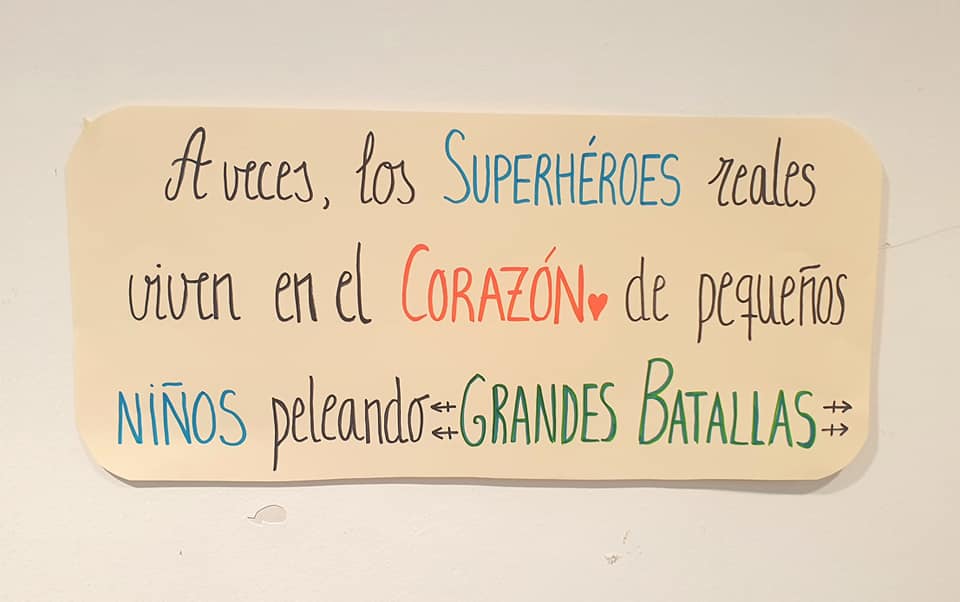 A veces, los SUPERHÉROES reales
viven en el CORAZÓN♥ de pequeños
NIÑOS peleando GRANDES BATALLAS